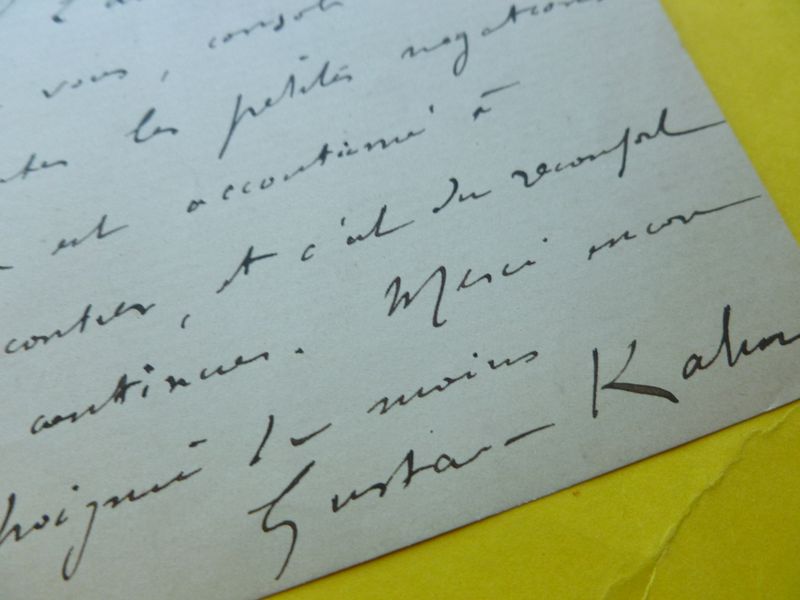 vous, consol
les petites negations
est accoutumé à
contrer, et c'est du reconfort
continuer. Merci encore
Poignée de mains
Gustave Kahn